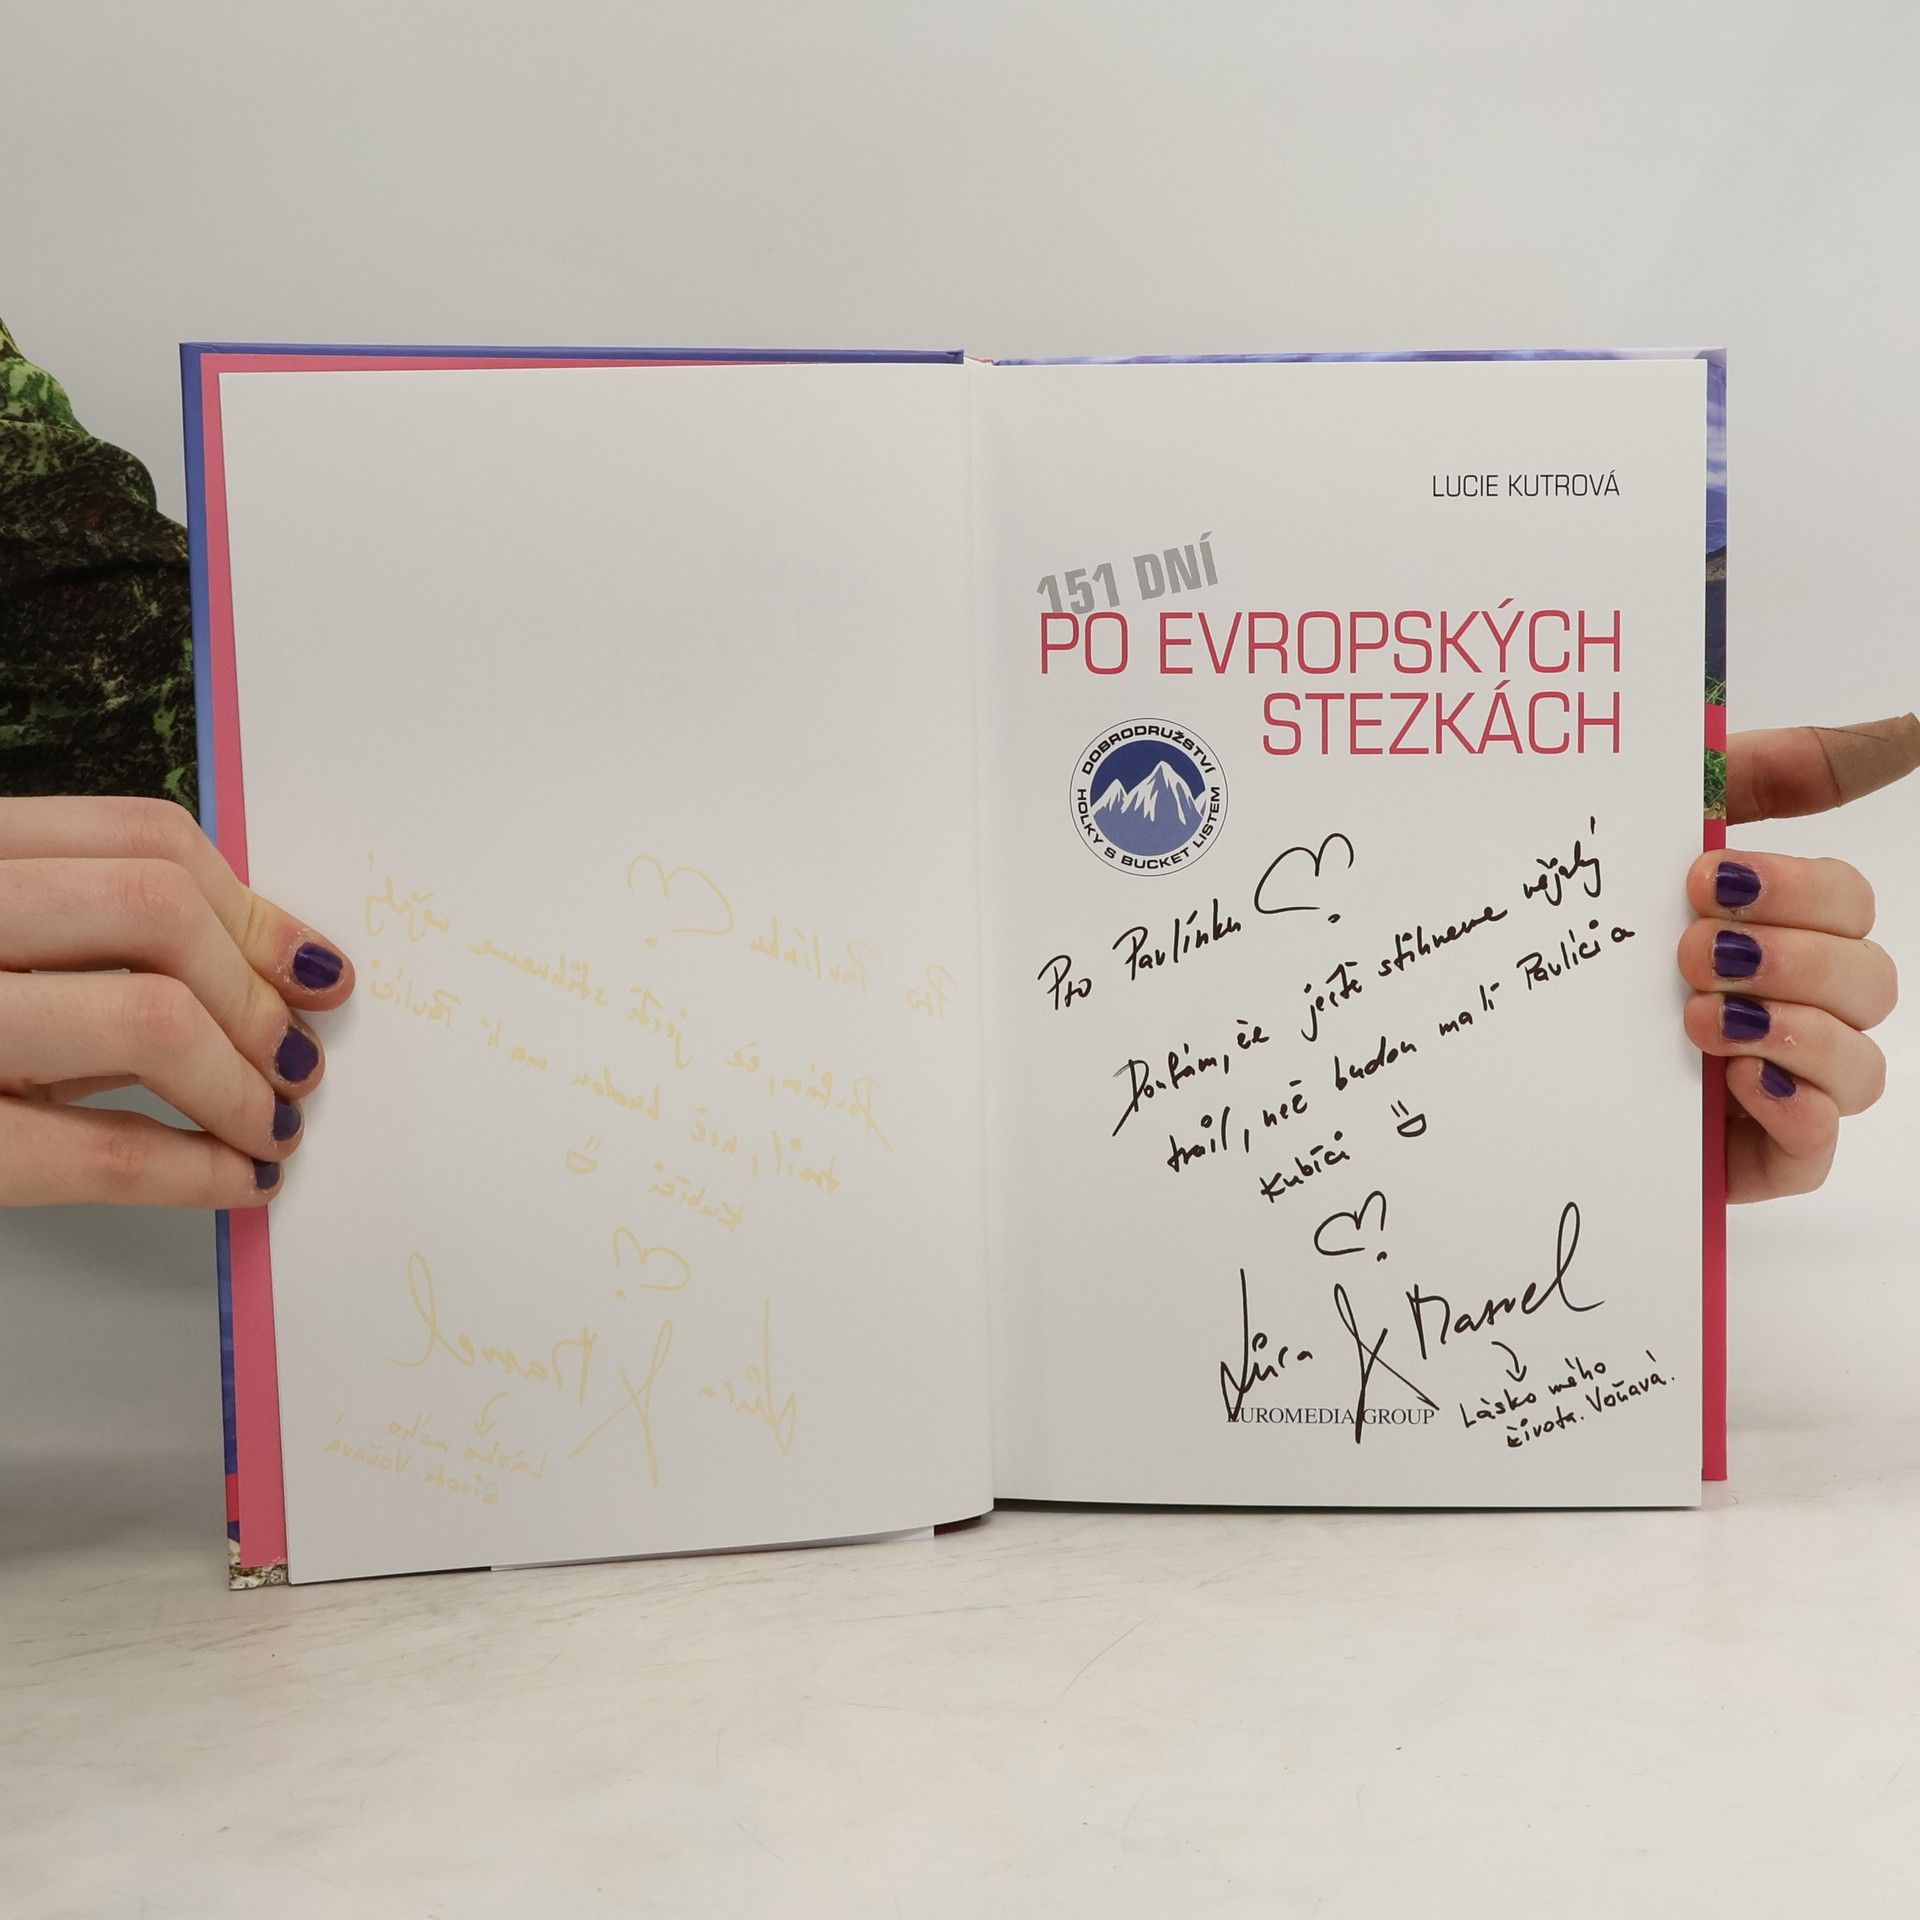 LUCIE KUTROVÁ
151 DNÍ
PO EVROPSKÝCH
STEZKÁCH
DOBRODRUŽSTVÍ
HOLKY S BUCKET LISTEM
Pro Pavlínku
Doufám, že ještě stihneme nějaký
trail, než budou malí Pavlíci a
Kubíci
Lůca & Marvel
Lásko mého
života. Voňavá.
EUROMEDIA GROUP